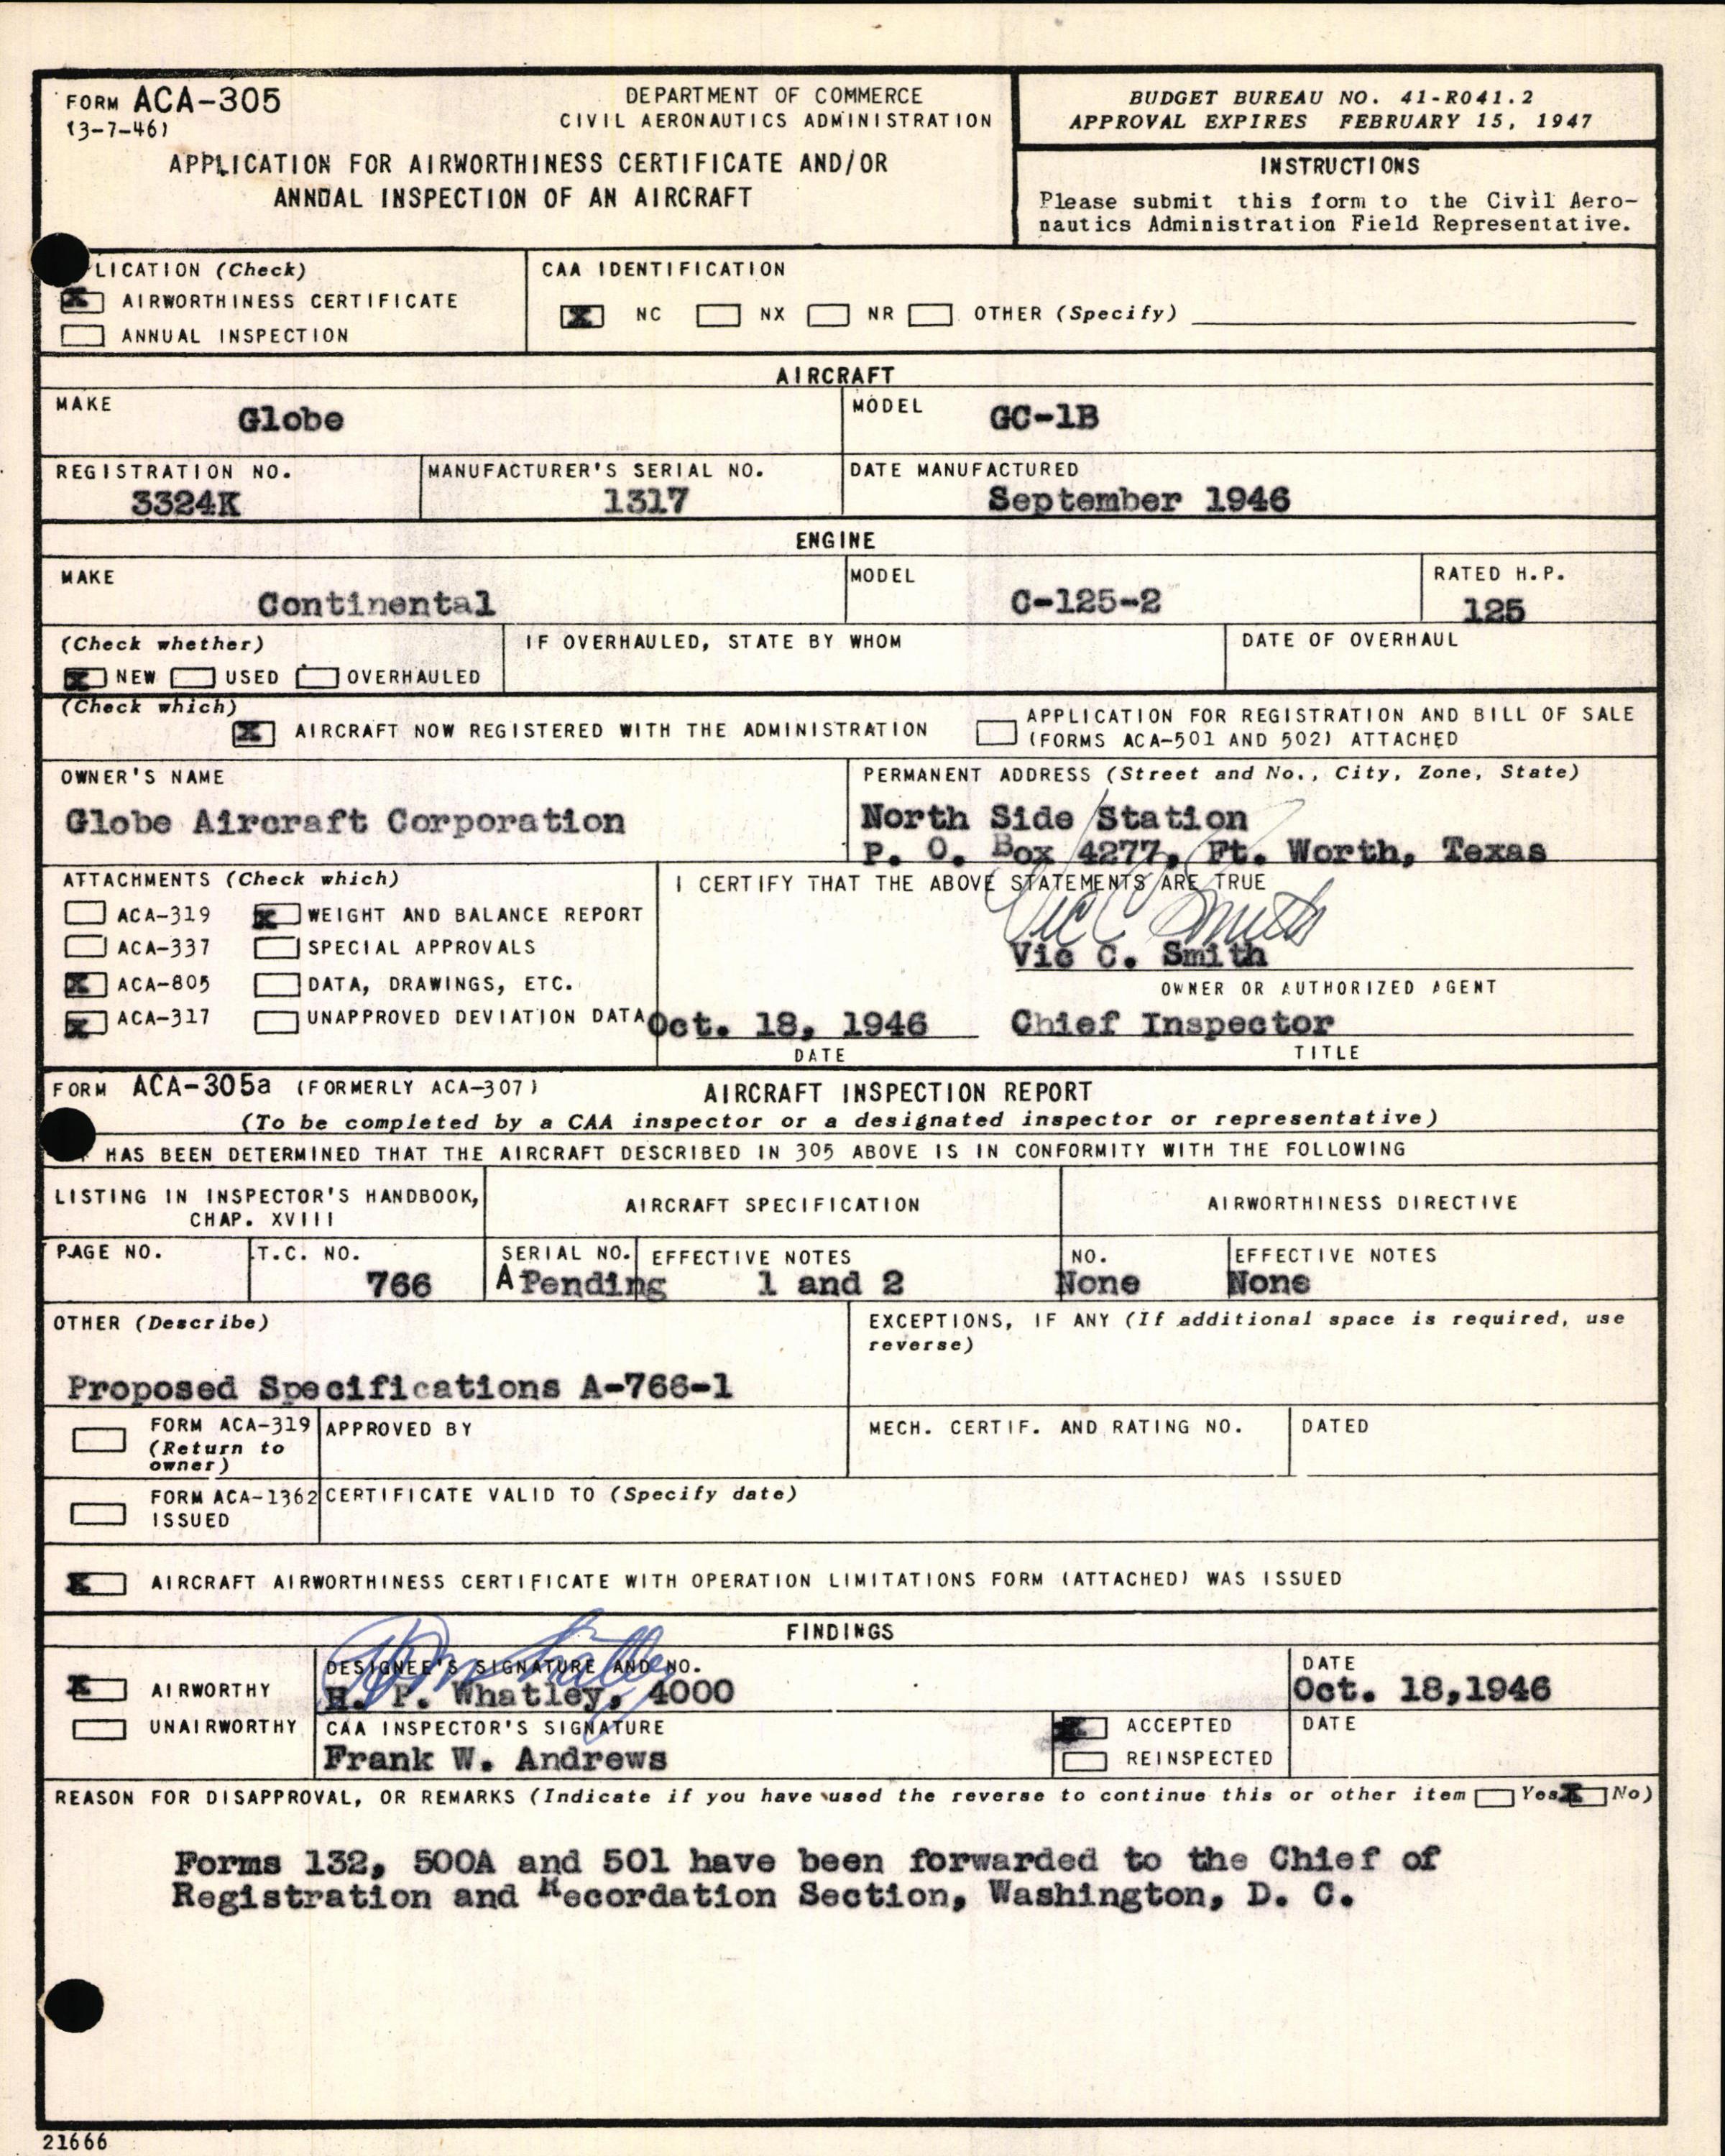 FORM ACA-305
(3-7-46)
DEPARTMENT OF COMMERCE
CIVIL AERONAUTICS ADMINISTRATION
APPLICATION FOR AIRWORTHINESS CERTIFICATE AND/OR
ANNUAL INSPECTION OF AN AIRCRAFT
BUDGET BUREAU NO. 41-R041.2
APPROVAL EXPIRES FEBRUARY 15, 1947
INSTRUCTIONS
Please submit this form to the Civil Aero-
nautics Administration Field Representative.
LICATION (Check)
X AIRWORTHINESS CERTIFICATE
ANNUAL INSPECTION
CAA IDENTIFICATION
X NC NX NR OTHER (Specify)
AIRCRAFT
MAKE
Globe
MODEL
GC-1B
REGISTRATION NO.
3324K
MANUFACTURER'S SERIAL NO.
1317
DATE MANUFACTURED
September 1946
ENGINE
MAKE
Continental
MODEL
C-125-2
RATED H.P.
125
(Check whether)
X NEW USED OVERHAULED
IF OVERHAULED, STATE BY WHOM
DATE OF OVERHAUL
(Check which)
X AIRCRAFT NOW REGISTERED WITH THE ADMINISTRATION
APPLICATION FOR REGISTRATION AND BILL OF SALE
(FORMS ACA-501 AND 502) ATTACHED
OWNER'S NAME
Globe Aircraft Corporation
PERMANENT ADDRESS (Street and No., City, Zone, State)
North Side Station
P. O. Box 4277, Ft. Worth, Texas
ATTACHMENTS (Check which)
ACA-319 X WEIGHT AND BALANCE REPORT
ACA-337 SPECIAL APPROVALS
X ACA-805 DATA, DRAWINGS, ETC.
X ACA-317 UNAPPROVED DEVIATION DATA
I CERTIFY THAT THE ABOVE STATEMENTS ARE TRUE
Vic C Smith
Vic C. Smith
OWNER OR AUTHORIZED AGENT
Oct. 18, 1946 Chief Inspector
DATE TITLE
FORM ACA-305a (FORMERLY ACA-307) AIRCRAFT INSPECTION REPORT
(To be completed by a CAA inspector or a designated inspector or representative)
HAS BEEN DETERMINED THAT THE AIRCRAFT DESCRIBED IN 305 ABOVE IS IN CONFORMITY WITH THE FOLLOWING
LISTING IN INSPECTOR'S HANDBOOK,
CHAP. XVIII
AIRCRAFT SPECIFICATION
AIRWORTHINESS DIRECTIVE
PAGE NO.
T.C. NO.
766
SERIAL NO.
A Pending
EFFECTIVE NOTES
1 and 2
NO.
None
EFFECTIVE NOTES
None
OTHER (Describe)
Proposed Specifications A-766-1
EXCEPTIONS, IF ANY (If additional space is required, use
reverse)
FORM ACA-319
(Return to
owner)
APPROVED BY
MECH. CERTIF. AND RATING NO.
DATED
FORM ACA-1362
ISSUED
CERTIFICATE VALID TO (Specify date)
X AIRCRAFT AIRWORTHINESS CERTIFICATE WITH OPERATION LIMITATIONS FORM (ATTACHED) WAS ISSUED
FINDINGS
X AIRWORTHY
UNAIRWORTHY
DESIGNEE'S SIGNATURE AND NO.
H P Whatley
H. P. Whatley, 4000
DATE
Oct. 18,1946
CAA INSPECTOR'S SIGNATURE
Frank W. Andrews
X ACCEPTED
REINSPECTED
DATE
REASON FOR DISAPPROVAL, OR REMARKS (Indicate if you have used the reverse to continue this or other item Yes X No)
Forms 132, 500A and 501 have been forwarded to the Chief of
Registration and Recordation Section, Washington, D. C.
21666